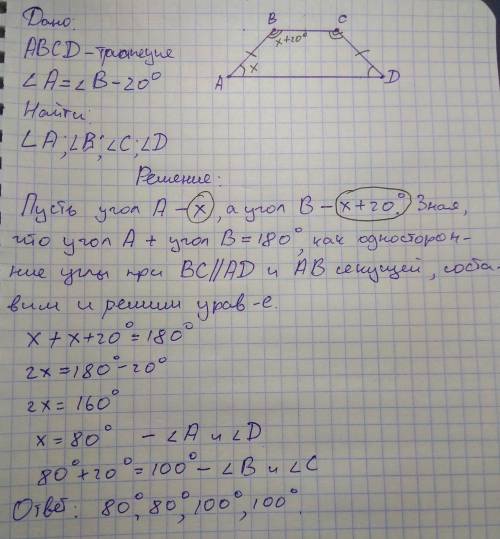 Дано:
ABCD - трапеция
∠A = ∠B - 20°
Найти:
∠A; ∠B; ∠C; ∠D
B
C
x+20°
x
A
D
Решение:
Пусть угол A - x, а угол B - x+20°. Зная,
что угол A + угол B = 180°, как односторон-
ние углы при BC//AD и AB секущей, соста-
вим и решим урав-е.
x + x + 20° = 180°
2x = 180° - 20°
2x = 160°
x = 80° - ∠A и ∠D
80° + 20° = 100° - ∠B и ∠C
Ответ: 80°, 80°, 100°, 100°.